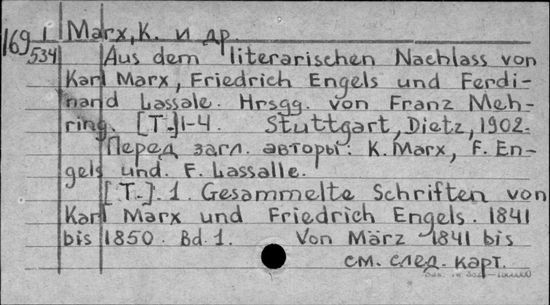 169 1 Marx, K. и др.
534 Aus dem literarischen Nachlass von
Karl Marx, Friedrich Engels und Ferdi-
nand Lassale. Hrsgg. von Franz Meh-
ring. [T.-] 1-4. Stuttgart, Dietz, 1902.
Перед загл. авторы: K. Marx, F. En-
gels und. F. Lassalle.
[T.-]. 1. Gesammelte Schriften von
Karl Marx und Friedrich Engels. 1841
bis 1850. Bd. 1. Von März 1841 bis
см. след. карт.